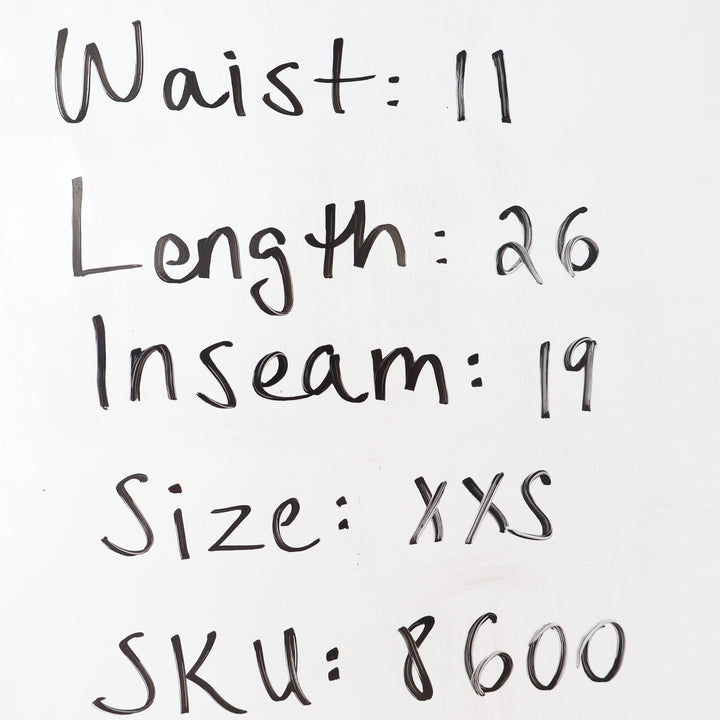 Waist: 11
Length: 26
Inseam: 19
Size: XXS
SKU: 8600